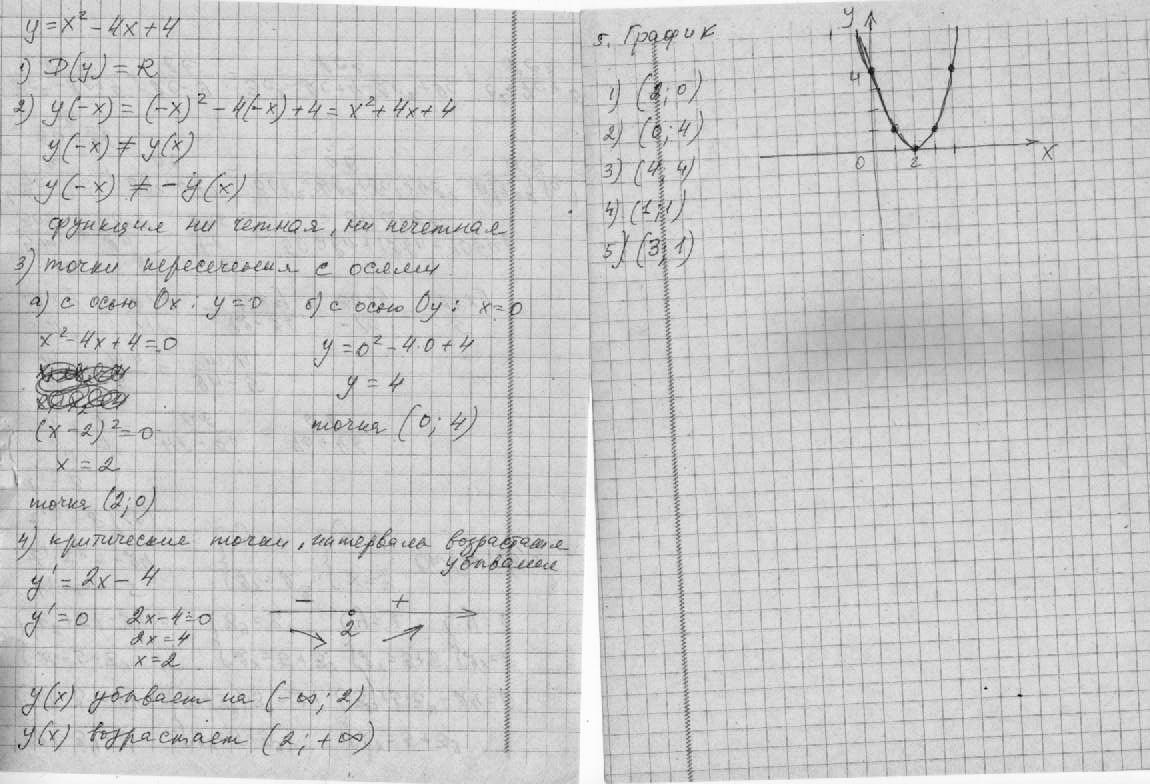 y = x² - 4x + 4
1) D(y) = R
2) y(-x) = (-x)² - 4(-x) + 4 = x² + 4x + 4
y(-x) ≠ y(x)
y(-x) ≠ -y(x)
функция ни четная, ни нечетная
3) точки пересечения с осями
а) с осью Ox: y = 0
x² - 4x + 4 = 0
(x - 2)² = 0
x = 2
точка (2; 0)
б) с осью Oy: x = 0
y = 0² - 4·0 + 4
y = 4
точка (0; 4)
4) критические точки, интервалы возрастания
убывания
y' = 2x - 4
y' = 0
2x - 4 = 0
2x = 4
x = 2
- +
2
y(x) убывает на (-∞; 2)
y(x) возрастает (2; +∞)
5. График
1) (2; 0)
2) (0; 4)
3) (4; 4)
4) (1; 1)
5) (3; 1)
y
4
0 2 x